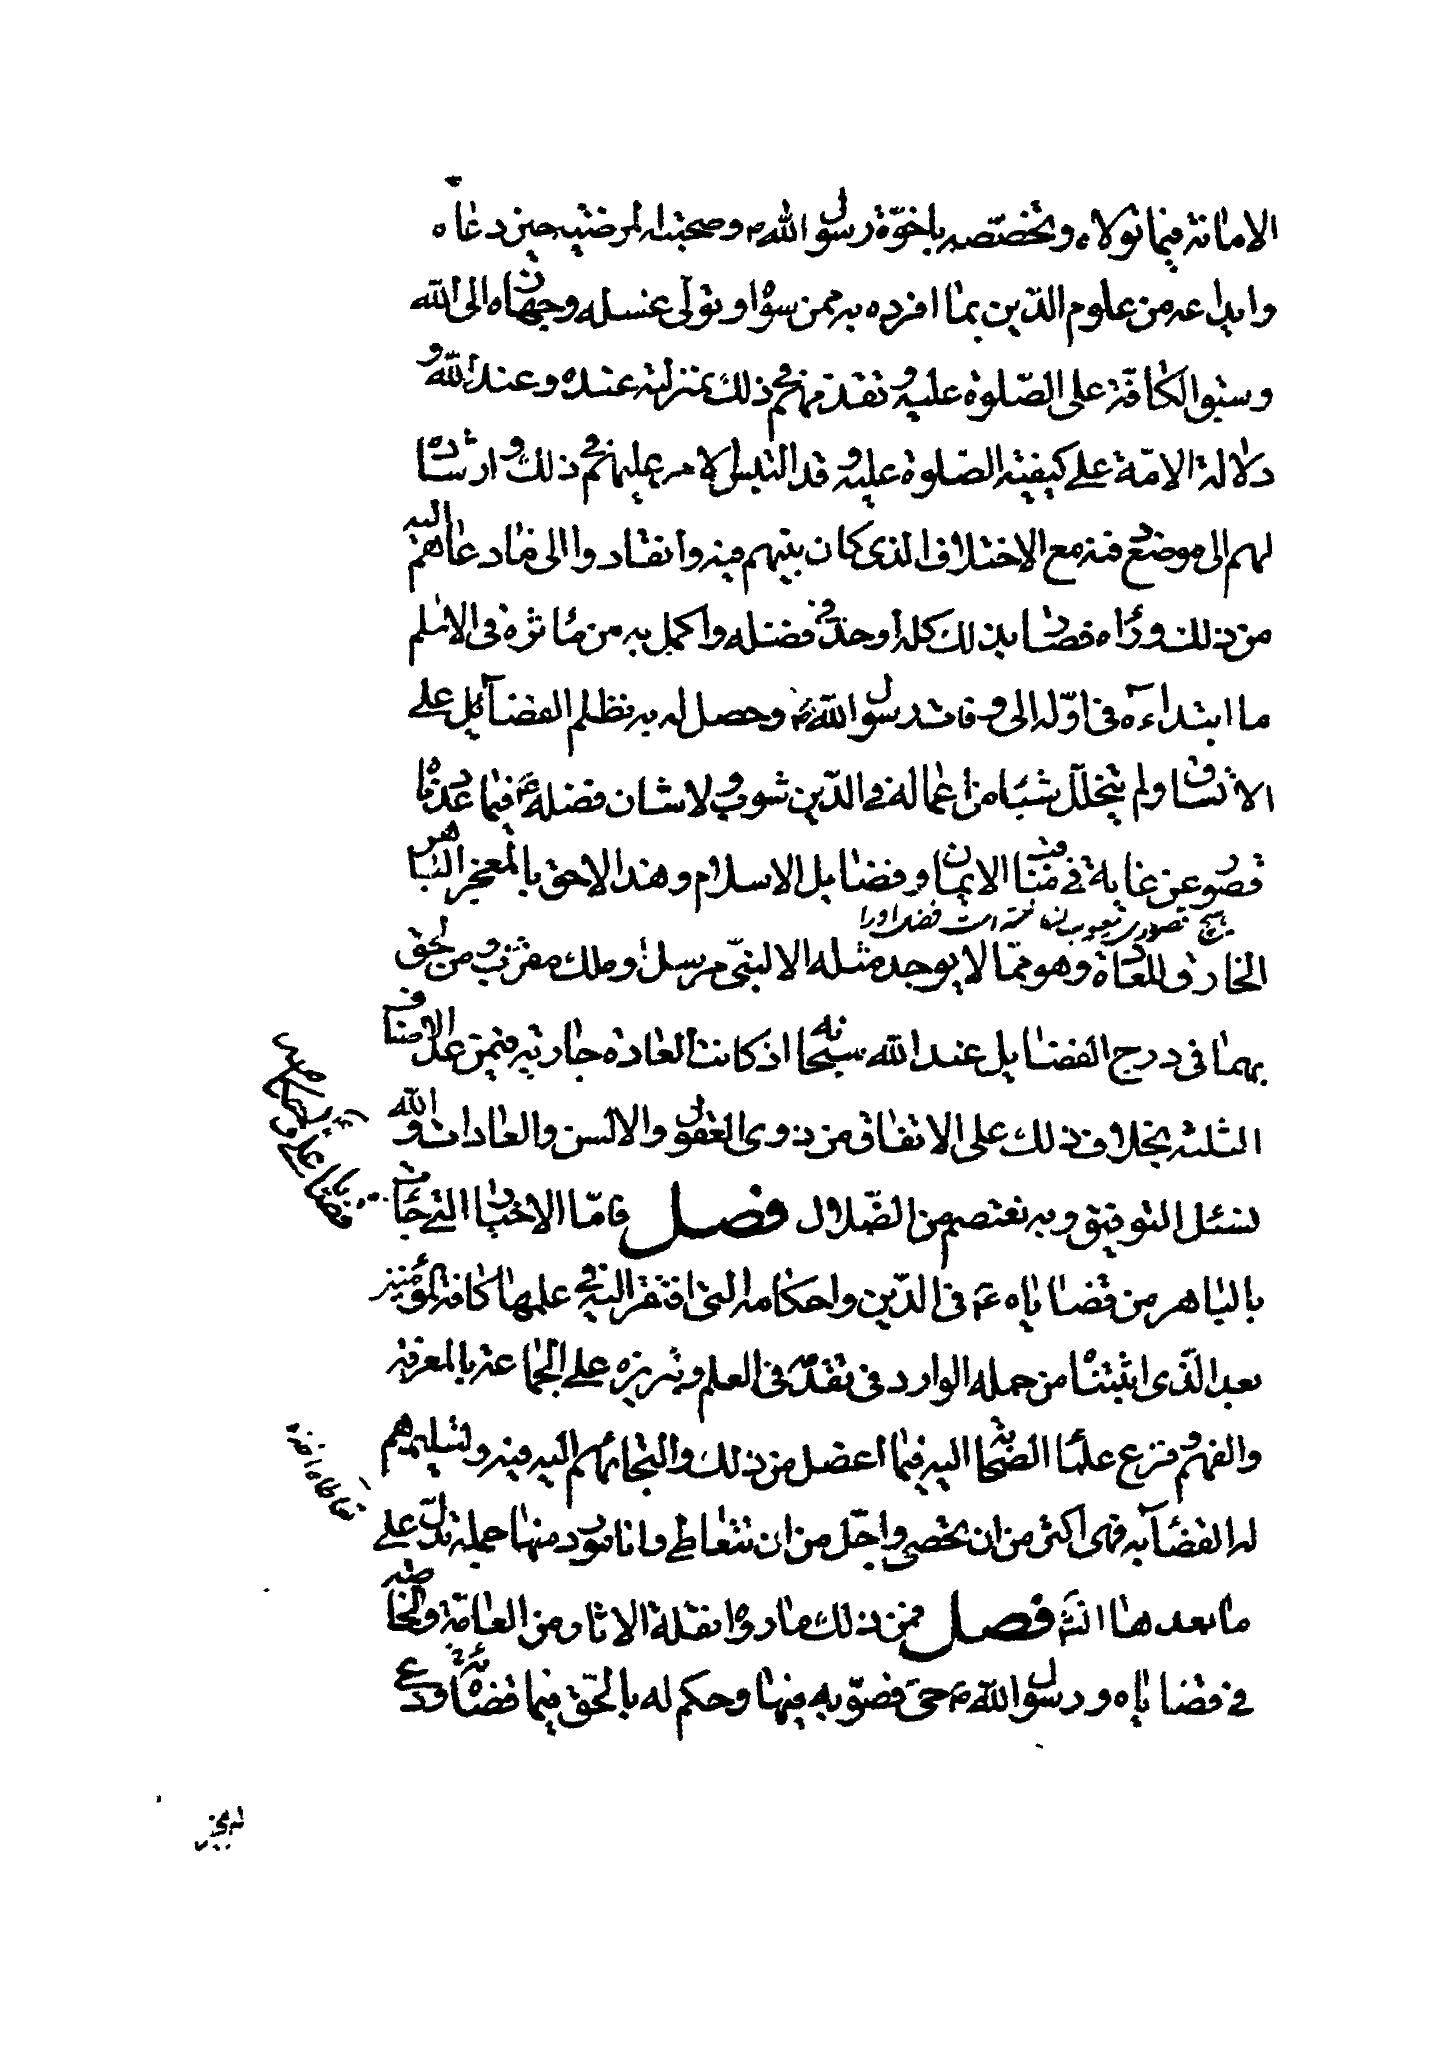 الامانة فيما تولاه وتخصّصه باخوّة رسول الله م وصحبته المرضية حين دعاه
وايداعه من علوم الدّين بما افرده به ممن سواه وتولى غسله وجهازه الى الله
وسبق الكافّة على الصّلوة عليه و تقدمهم فى ذلك بمنزلته عنده وعند الله و
دلالة الامّة على كيفية الصّلوة عليه و قد التبس الامر عليهم فى ذلك و ارشاده
لهم الى موضع دفنه مع الاختلاف الذى كان بينهم فيه وانقادوا الى ما دعاهم اليه
من ذلك ورآه فصار بذلك كله اوحد فى فضله واكمل به من مآثره فى الاسلم
ما ابتداءه فى اوّله الى وفات رسول الله م وحصل له به نظلم الفضآئل على
الاتساق ولم يتخلّل شيئا من اعماله فى الدّين شوب ولا شان فضله ع فيما عددناه
قصور عن غاية فى مناقب الايمان و فضايل الاسلام وهذا لاحق بالمعجز الباهر
هيچ قصورى نعيوب فضل او را
الخارق للعادة وهو ممّا لا يوجد مثله الا لنبىّ مرسل او ملك مقرب ومن لحق
بهما فى درج الفضايل عند الله سبحانه اذ كانت العادة جارية فيمن عدا الاصناف
الثلثة بخلاف ذلك على الاتفاق من ذوى العقول والالسن والعادات و الله
نسئل التوفيق وبه نعتصم من الضّلال فصل فامّا الاخبار التى جاءت
بالباهر من قضاياه ع فى الدّين واحكامه التى افتقر اليه فى علمها كافة المؤمنين
بعد الّذى اثبتناه من جمله الوارد فى تقدّمه فى العلم وتبريزه على الجماعة بالمعرفة
والفهم و فزع علماء الصّحابة اليه فيما اعضل من ذلك والتجائهم اليه فيه وتسليمهم
له القضآء به فهى اكثر من ان تحصى واجلّ من ان تتعاطى وانا مورد منها جملة تدلّ على
ما بعدها انش فصل فمن ذلك ما رواه نقلة الاثار من العامّة والخاصّة
فى قضاياه و رسول الله م حىّ فصوّبه فيها وحكم له بالحق فيما قضاه ودعى
له بخير